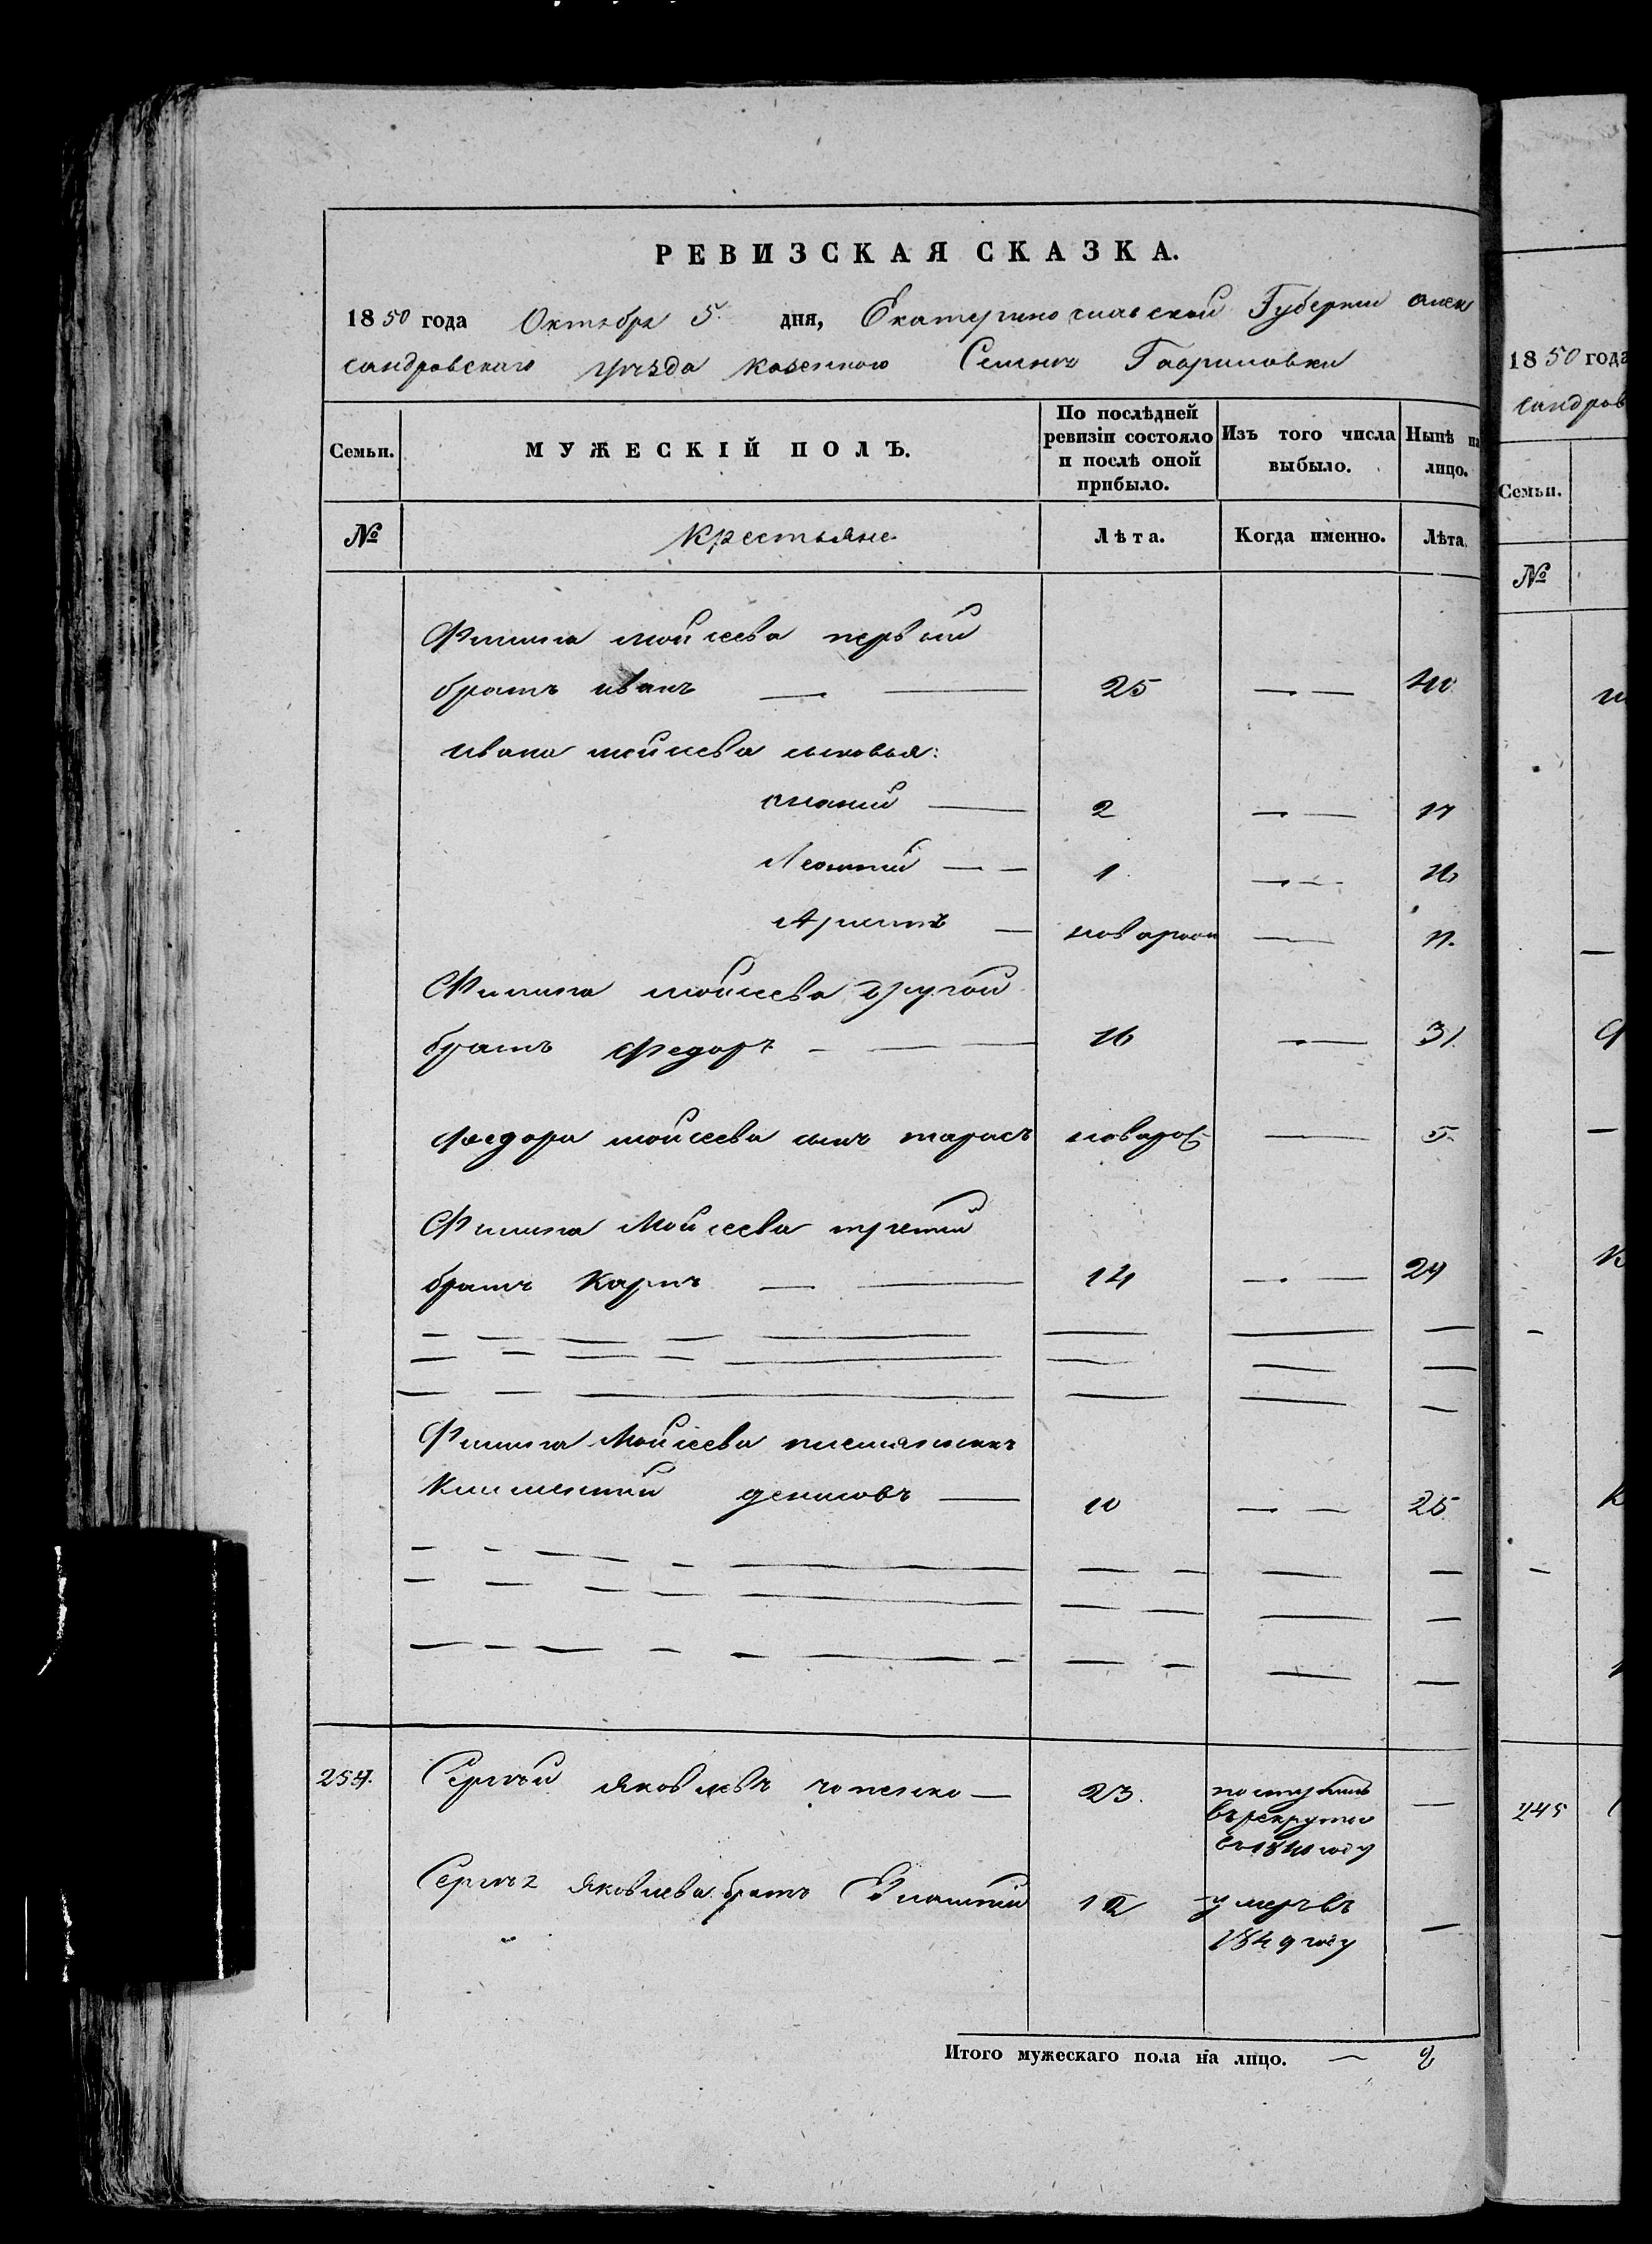 РЕВИЗСКАЯ СКАЗКА.
1850 года Октября 5. дня, Екатеринославской Губернии Алек
сандровскаго уѣзда казенного Селенія Гавриловки
Семьи. МУЖЕСКІЙ ПОЛЪ. По послѣдней ревизіи состояло и послѣ оной прибыло. Изъ того числа выбыло. Нынѣ на лицо.
№ Крестьяне Лѣта. Когда именно. Лѣта.
Филипа Мойсеева первый
братъ иванъ 25 40
ивана мойсеева сыновья:
2 17
Леонтий 1 16
новарож 11.
Филипа мойсеева другой
братъ федоръ 16 31.
федора мойсеева сынъ тарасъ новарож 5
Филипа Мойсеева третий
братъ Карпъ 14 29
Филипа Мойсеева племянникъ
Климентий денисовъ 10 25
254. Сергѣй яковлевъ 23. поступилъ
въ рекруты
въ 1840 году
Сергѣя яковлева братъ Евлампий 12 умеръ въ
1849 году
Итого мужескаго пола на лицо. 8
1850 года
сандров
Семьи.
№
245